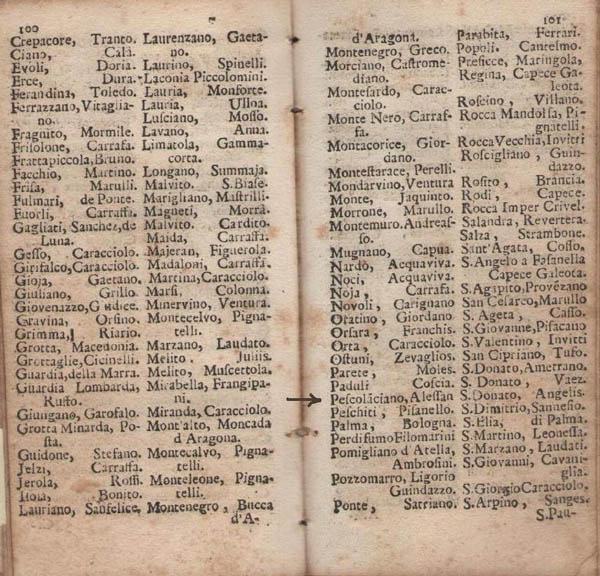 100
Crepacore, Tranto.
Ciano, Calà
Evoli, Doria.
Erce, Dura.
Ferandina, Toledo.
Ferrazzano, Vitaglia-
no.
Fragnito, Mormile.
Frisolone, Carrafa.
Frattapiccola, Bruno.
Facchio, Martino.
Frisa, Marulli.
Fulmari, de Ponte.
Fuorli, Carraffa.
Gagliati, Sanchez, de
Luna.
Gesso, Caracciolo.
Girifalco, Caracciolo.
Gioja, Gaetano.
Giuliano, Grillo
Giovenazzo, Giudice.
Gravina, Orsino.
Grimma, Riario.
Grotta, Macedonia.
Grottaglie, Cicinelli.
Guardia, della Marra.
Guardia Lombarda,
Ruffo.
Giungano, Garofalo.
Grotta Minarda, Po-
sta.
Guidone, Stefano.
Jelzi, Carraffa.
Jerola, Rossi.
Bonito.
Lauriano, Sanfelice.
Laurenzano, Gaeta-
no.
Laurino, Spinelli.
Laconia Piccolomini.
Lauria, Monforte.
Lauria, Ulloa.
Lusciano, Mosso.
Lavano, Anna.
Limatola, Gamma-
corta.
Longano, Summaja.
Malvito, S. Biase.
Marigliano, Mastrilli.
Magneti, Morra.
Malvito, Cardito.
Maida, Carraffa.
Majeran, Figuerola.
Madaloni, Carraffa.
Martina, Caracciolo.
Marsi, Colonna.
Minervino, Ventura.
Montecelvo, Pigna-
telli.
Marzano, Laudato.
Melito,
Melito, Muscettola.
Mirabella, Frangipa-
ni.
Miranda, Caracciolo.
Mont'alto, Moncada
d'Aragona.
Montecalvo, Pigna-
telli.
Monteleone, Pigna-
telli.
Montenegro, Bucca
d'A-
101
d'Aragona.
Montenegro, Greco.
Morciano, Castrome-
diano.
Montesardo, Carac-
ciolo.
Monte Nero, Carraf-
fa.
Montacorice, Gior-
dano.
Montestarace, Perelli.
Mondarvino, Ventura
Monte, Jaquinto.
Morrone, Marullo.
Montemuro. Andreas-
so.
Mugnano, Capua.
Nardò, Acquaviva.
Noci, Acquaviva.
Noja, Carrafa.
Novoli, Carignano
Oratino, Giordano
Orsara, Franchis.
Orta, Caracciolo.
Ostuni, Zevaglios.
Parete, Moles.
Paduli Coscia.
Pescolaciano, Alessan
Peschiti, Pisanello.
Palma, Bologna.
Perdifumo Filomarini
Pomigliano d'Atella,
Ambrosini.
Pozzomarro, Ligorio
Guindazzo.
Ponte, Satriano.
Parabita, Ferrari.
Popoli. Cantelmo.
Presicce, Maringola,
Regina, Capece Ga-
leota.
Roseino, Villano.
Rocca Mandolfa, Pi-
gnatelli.
Rocca Vecchia, Invitti
Roscigliano, Guin-
dazzo.
Rosito, Brancia.
Rodi, Capece.
Rocca Imper Crivel.
Salandra, Revertera.
Salza, Strambone.
Sant'Agata, Cosso.
S. Angelo a Fasanella
Capece Galeota.
S. Agapito, Provezano
San Cesareo, Marullo
S. Ageta, Casso.
S. Giovanne, Pisacano
S. Valentino, Invitti
San Cipriano, Tufo.
S. Donato, Ametrano.
S. Donato, Vaez.
S. Donato, Angelis.
S. Dimitrio, Sannesio.
S. Elia, di Palma.
S. Martino, Leonessa.
S. Marzano, Laudati.
S. Giovanni, Cavani-
glia.
S. Giorgio Caracciolo.
S. Arpino, Sanges.
S. Pau-